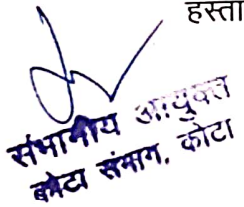 हस्ता
संभागीय आयुक्त
कोटा संभाग, कोटा